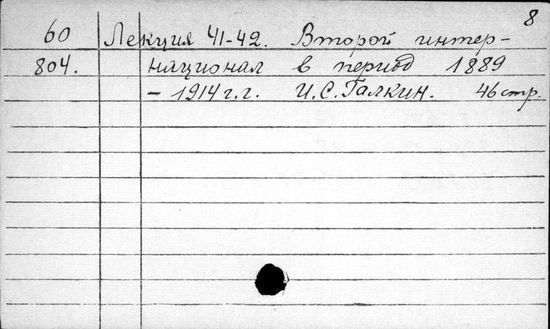 8
60 Лекция 41-42. Второй интер-
804. национал в период 1889
- 1914 г.г. И.С. Галкин. 46 стр.